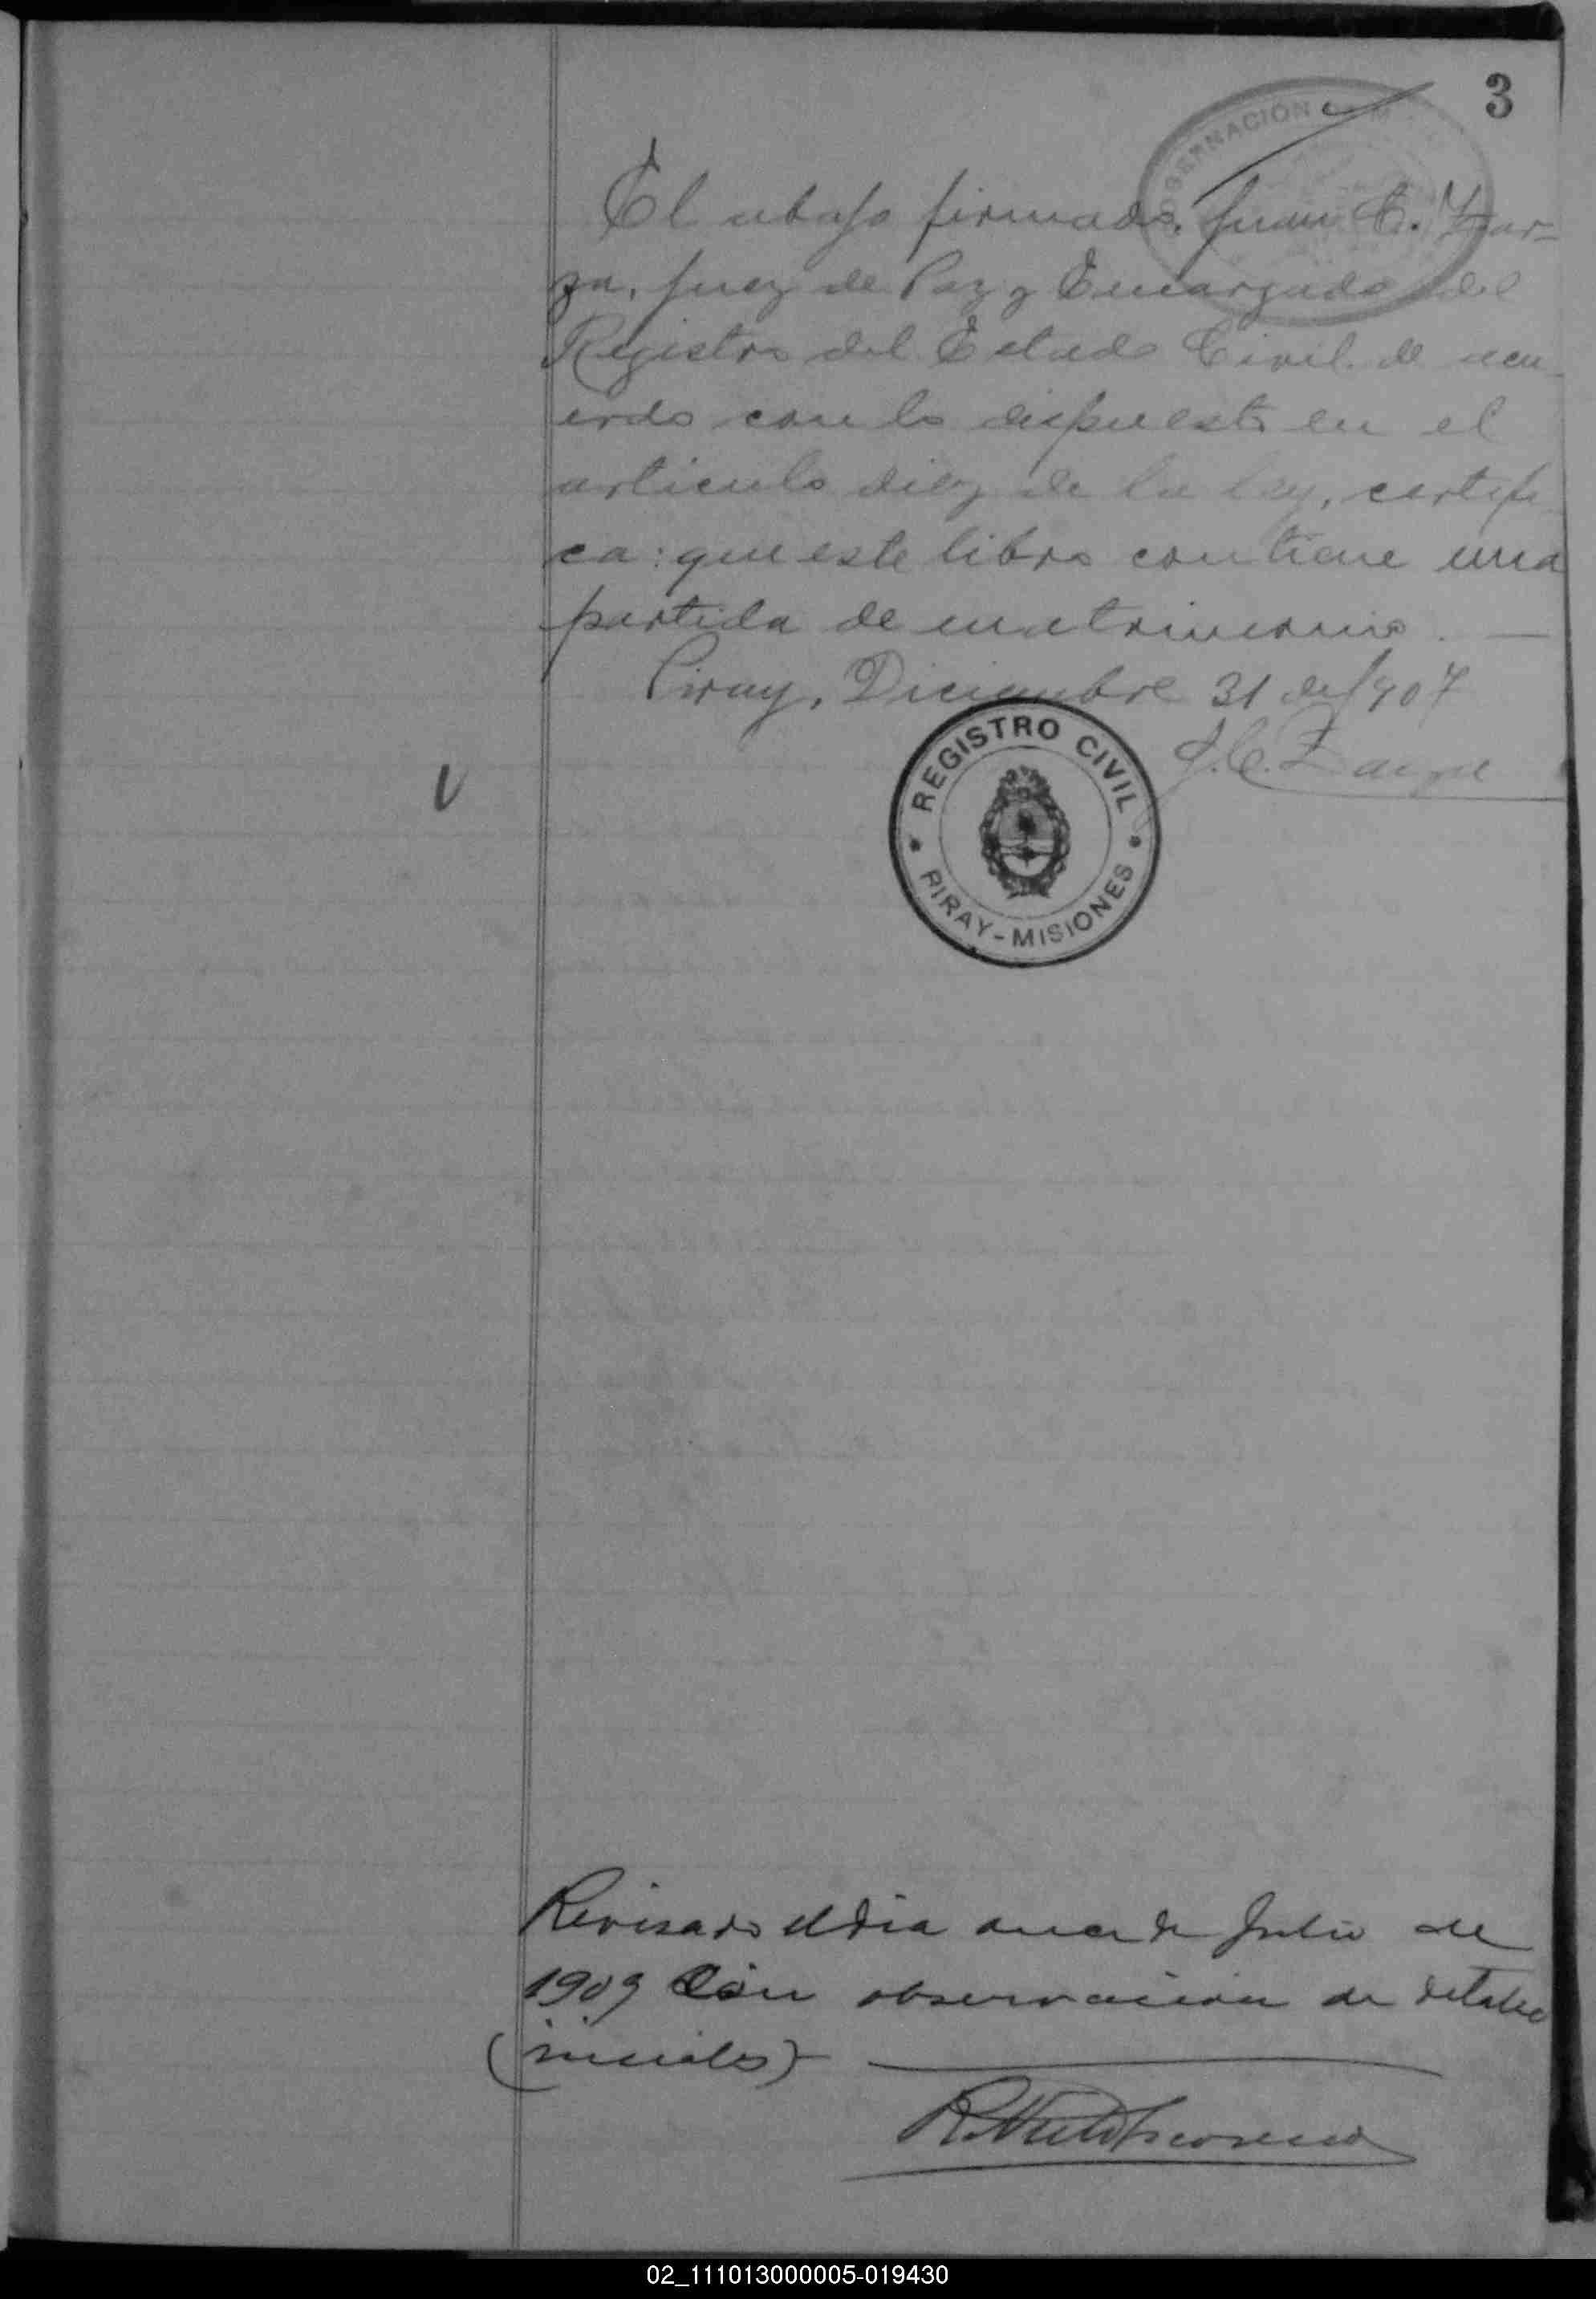 3
GOBERNACIÓN
El abajo firmado, Juan C. Zar-
za, Juez de Paz y Encargado del
Registro del Estado Civil de acu
erdo con lo dispuesto en el
articulo diez de la ley, certifi
ca: que este libro contiene una
partida de matrimonio. —
Piray, Diciembre 31 de 1907
J. C. Zarza
REGISTRO CIVIL
PIRAY - MISIONES
Revisado el dia once de Julio de
1909 con observacion de detalles
(iniciales)
02_111013000005-019430